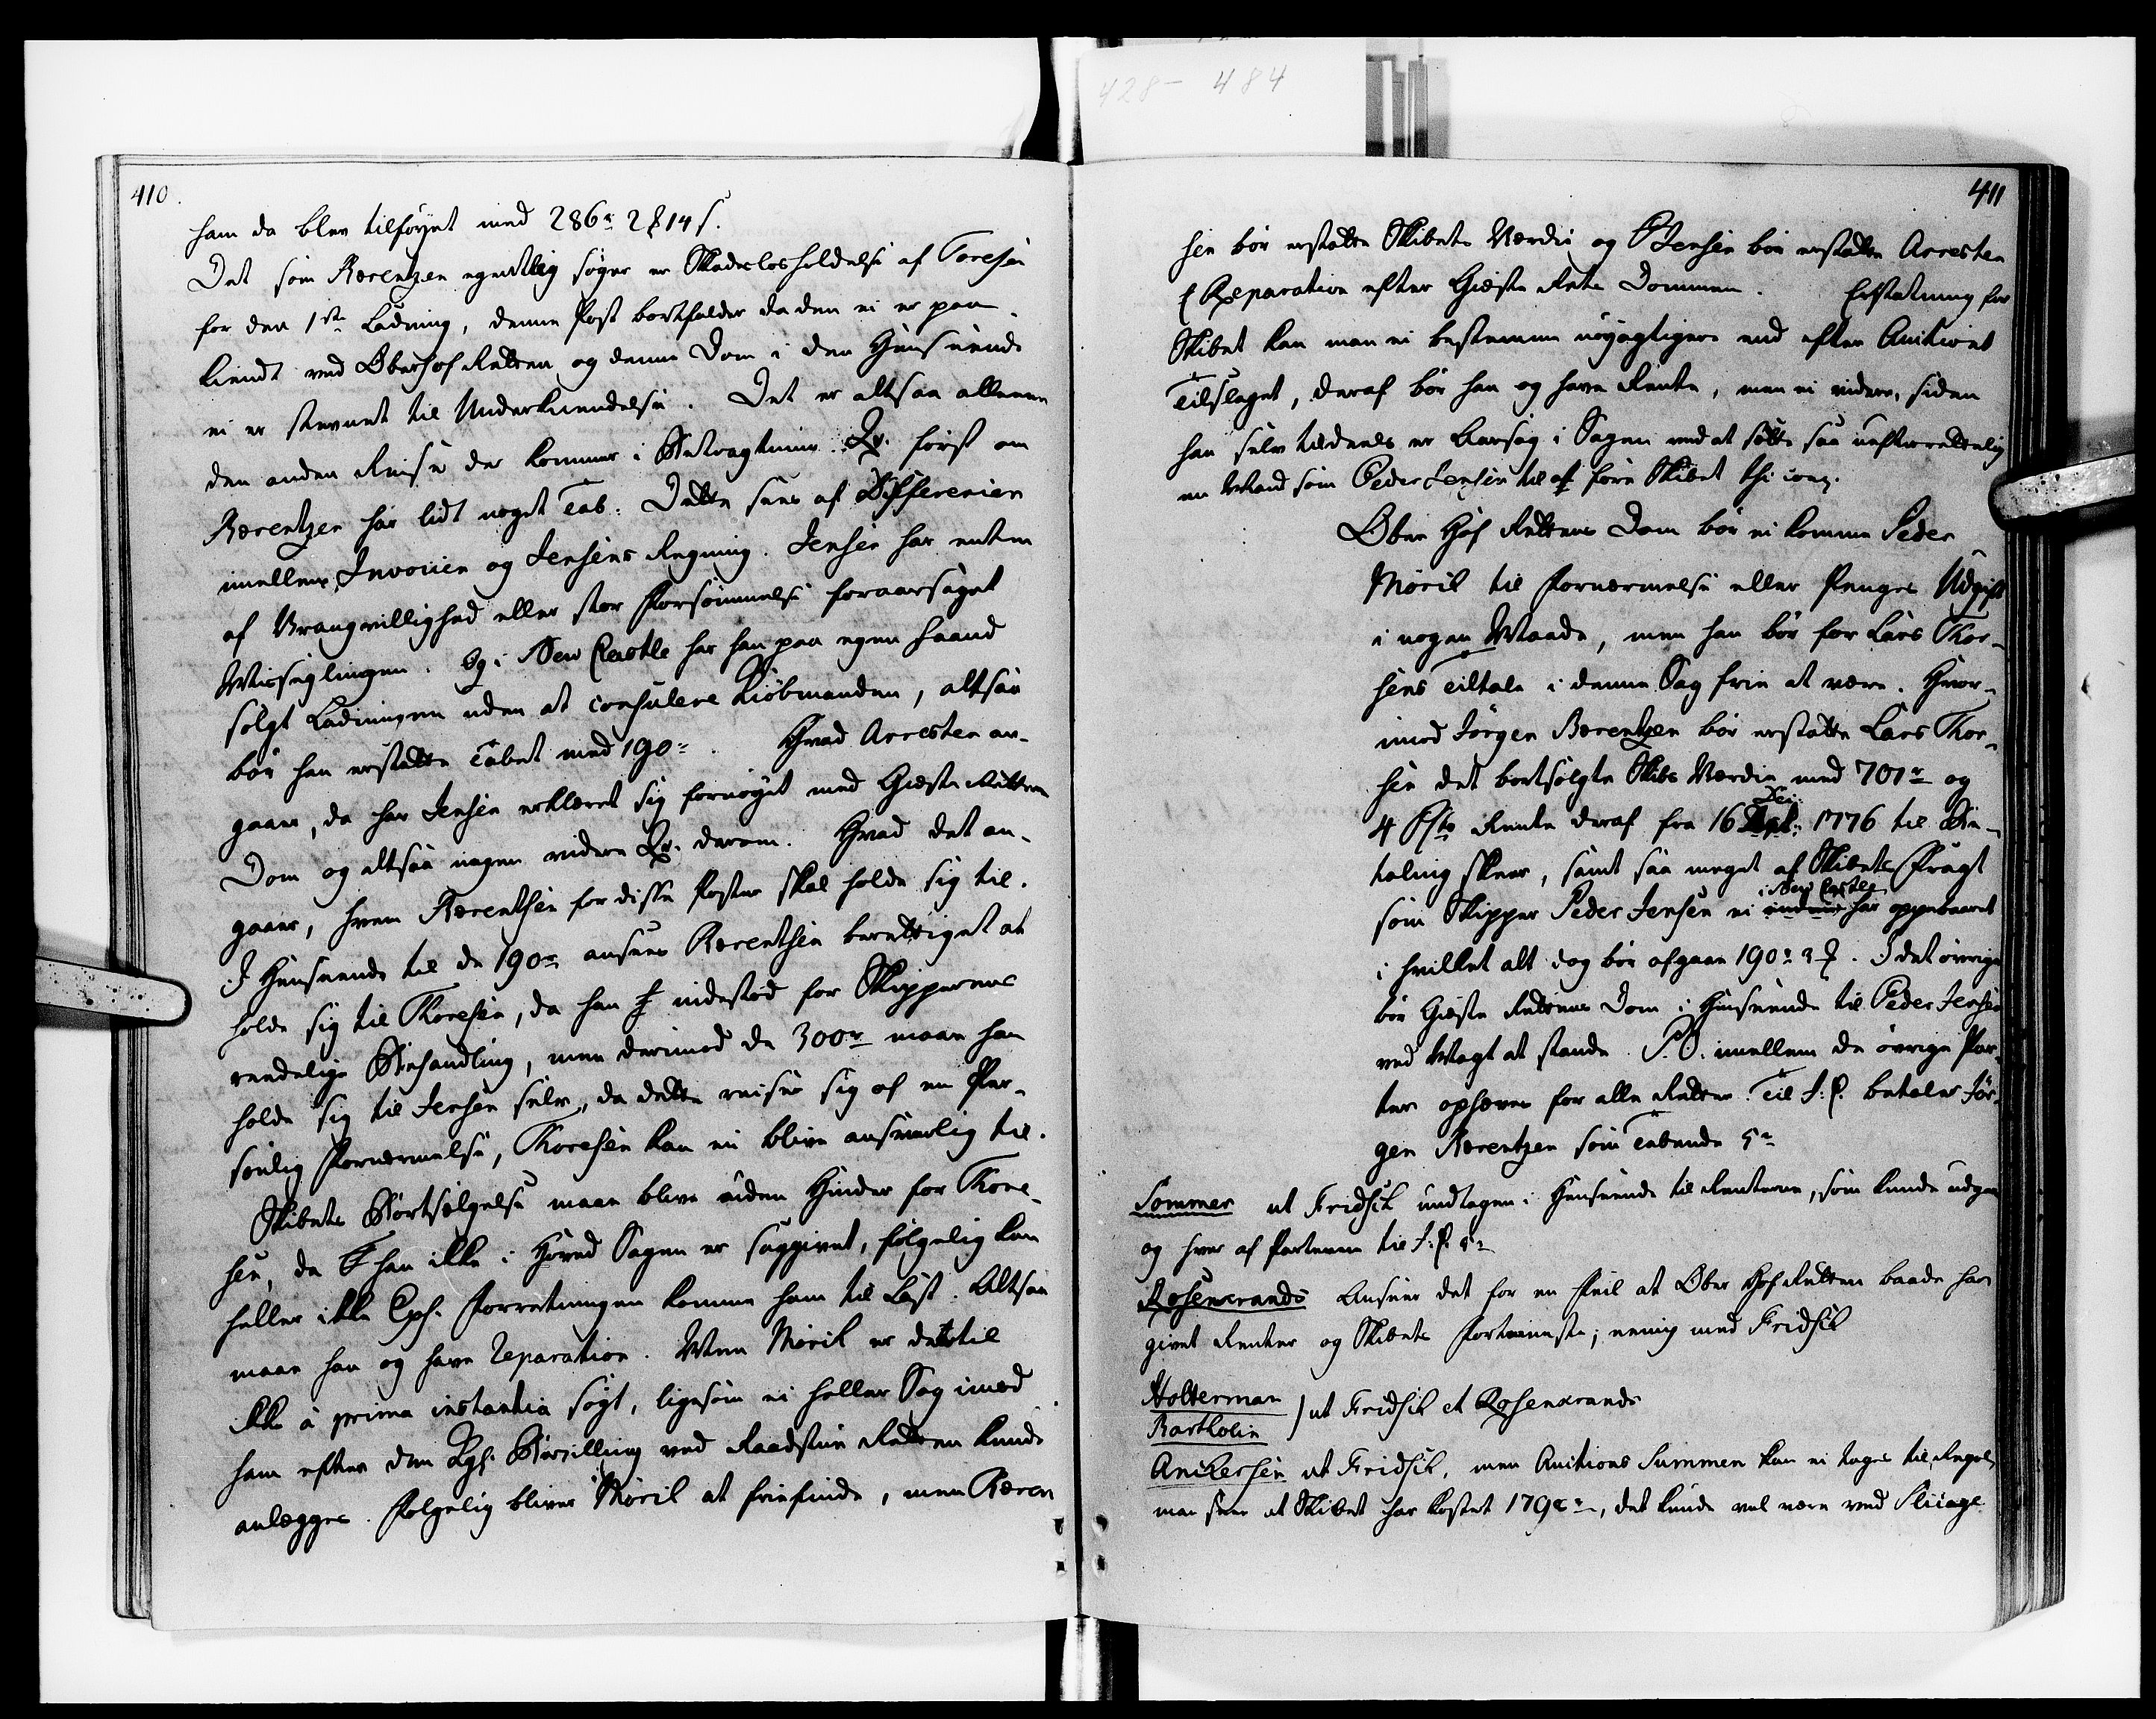 428- 484
410.
ham da blev tilföyet med 286 rd 2 ℔ 14 s.
Det som Berentzen egentlig söger er Skadesløsholdelse af Toresen
for den 1ste Ladning, denne Post bortfalder da den ei er paa
kiendt ved Oberhof Retten og denne Dom i den Henseende
ei er stevnet til Underkiendelse. Det er altsaa alleene
den anden Reise der kommer i Betragtning. Qv. först om
Berentzen har lidt noget Tab. Dette sees af Differencen
imellem Invoicen og Jensens Regning. Jensen har enten
af Vrangvillighed eller stor Forsömmelse foraarsaget
Misseiglingen. Og i New Castle har han paa egen Haand
solgt Ladningen uden at consulere Kiöbmanden, altsaa
bör han erstatte Tabet med 190 rd. Hvad Arresten an-
gaar, da har Jensen erklæret sig fornöyet med Gieste Rettens
Dom og altsaa ingen videre Qv. derom. Hvad det an-
gaar, hvem Berenthsen for disse Poster skal holde sig til.
I Henseende til de 190 rd ansees Berenthsen berettiget at
holde sig til Thoresen, da han indestod for Skipperens
reedelige Behandling, men derimod de 300 rd maae han
holde sig til Jensen selv, da dette reiser sig af en Per-
sonlig Fornærmelse, Thoresen kan ei blive ansvarlig til.
Skibets Bortsælgelse maae blive uden Hinder for Thore-
sen, da han ikke i Hoved Sagen er saggivet, fölgelig kan
heller ikke Exps. Forretningen komme ham til Last. Altsaa
maae han og have reparation. Men Mörik er dertil
ikke à prima instantia sögt, ligesom ei heller Sag imod
ham efter den Kgl. Bevilling ved Raadstue Retten kunde
anlægges. Fölgelig bliver Mörik at friefinde, men Beren
411
sen bör erstatte Skibets Værdie og P Jensen bör erstatte Arresten
& Reparation efter Gieste Rets Dommen. Erstatning for
Skibet kan man ei bestemme nöyagtigere end efter Auctions
Tilslaget, deraf bör han og have Rente, men ei videre, siden
han selv tildeels er Aarsag i Sagen ved at sætte saa uefterrettelig
en Mand som Peder Jensen til at före Skibet thi cons.
Ober Hof Rettens Dom bör ei komme Peder
Mörik til Fornærmelse eller Penges Udgift
i nogen Maade, men han bör for Lars Thor-
sens Tiltale i denne Sag frie at være. Hvor-
imod Jörgen Berentzen bör erstatte Lars Thor-
sen det bortsolgte Skibs Værdie med 701 rd og
4 Pcto Rente deraf fra 16 Dec. 1776 til Be-
taling skeer, samt saa meget af Skibets Fragt
som Skipper Peder Jensen ei i New Castle har oppebaaret
i hvilket alt dog bör afgaae 190 rd 3 ℔. I det övrige
bör Gieste Rettens Dom i Henseende til Peder Jensen
ved Magt at stande. P. O. imellem de övrige Par-
ter ophæves for alle Retter. Til J. C. betaler Jör-
gen Berentzen som Tabende 5 rd
Sommer ut Fridsch undtagen i Henseende til Renterne, som kunde udgaae
og hver af Parterne til J. C. 5 rd
Rosencrands Anseer det for en Feil at Ober Hof Retten baade har
givet Renter og Skibets Fortieneste; eenig med Fridsch
Holterman
Bartholin ) ut Fridsch et Rosencrands
Anchersen ut Fridsch, men Auctions Summen kan ei tages til Regel,
man seer at Skibet har kostet 179 rd, det kunde vel være ved Sliage